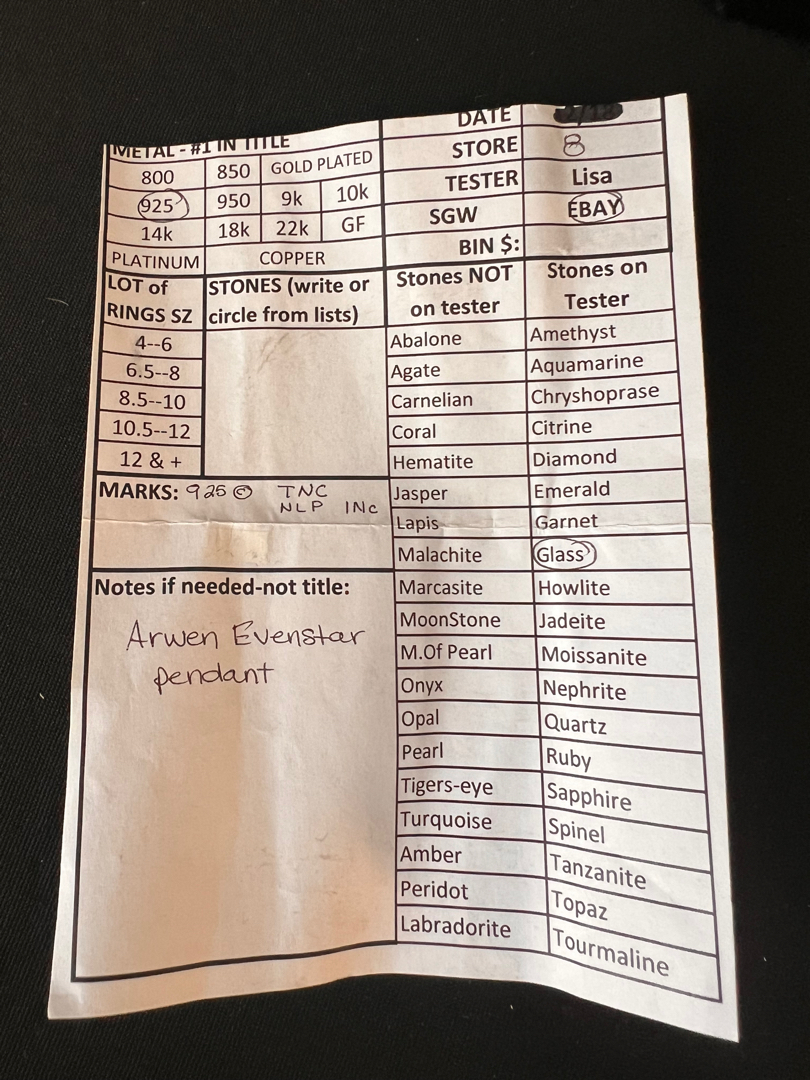 METAL - #1 IN TITLE
800 850 GOLD PLATED
925 950 9k 10k
14k 18k 22k GF
PLATINUM COPPER
DATE
STORE 8
TESTER Lisa
SGW EBAY
BIN $:
LOT of
RINGS SZ
4--6
6.5--8
8.5--10
10.5--12
12 & +
STONES (write or
circle from lists)
MARKS: 925 © TNC
NLP INc
Notes if needed-not title:
Arwen Evenstar
pendant
Stones NOT
on tester
Abalone
Agate
Carnelian
Coral
Hematite
Jasper
Lapis
Malachite
Marcasite
MoonStone
M.Of Pearl
Onyx
Opal
Pearl
Tigers-eye
Turquoise
Amber
Peridot
Labradorite
Stones on
Tester
Amethyst
Aquamarine
Chryshoprase
Citrine
Diamond
Emerald
Garnet
Glass
Howlite
Jadeite
Moissanite
Nephrite
Quartz
Ruby
Sapphire
Spinel
Tanzanite
Topaz
Tourmaline